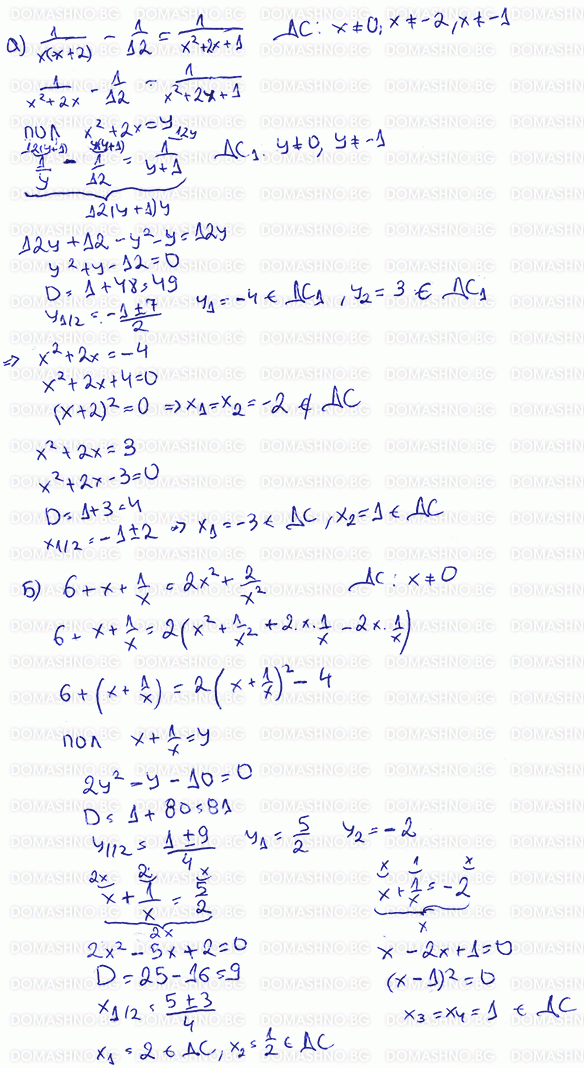 а) 1/(x(x+2)) - 1/12 = 1/(x²+2x+1) ДС: x≠0, x≠-2, x≠-1
1/(x²+2x) - 1/12 = 1/(x²+2x+1)
пол x²+2x=y
12(y+1) y(y+1) 12y
1/y - 1/12 = 1/(y+1) ДС₁. y≠0, y≠-1
12(y+1)y
12y+12-y²-y=12y
y²+y-12=0
D=1+48=49
y₁/₂ = (-1±7)/2 y₁=-4 ∈ ДС₁, y₂=3 ∈ ДС₁
=> x²+2x=-4
x²+2x+4=0
(x+2)²=0 => x₁=x₂=-2 ∉ ДС
x²+2x=3
x²+2x-3=0
D=1+3=4
x₁/₂=-1±2 => x₁=-3 ∈ ДС, x₂=1 ∈ ДС
б) 6+x+1/x = 2x²+2/x² ДС: x≠0
6+x+1/x = 2(x²+1/x²+2.x.1/x-2x.1/x)
6+(x+1/x) = 2(x+1/x)²-4
пол x+1/x=y
2y²-y-10=0
D=1+80=81
y₁/₂ = (1±9)/4 y₁=5/2 y₂=-2
2x 2 x
x+1/x = 5/2
2x
2x²-5x+2=0
D=25-16=9
x₁/₂ = (5±3)/4
x₁=2 ∈ ДС, x₂=1/2 ∈ ДС
x 1 x
x+1/x=-2
x
x-2x+1=0
(x-1)²=0
x₃=x₄=1 ∈ ДС
DOMASHNO.BG